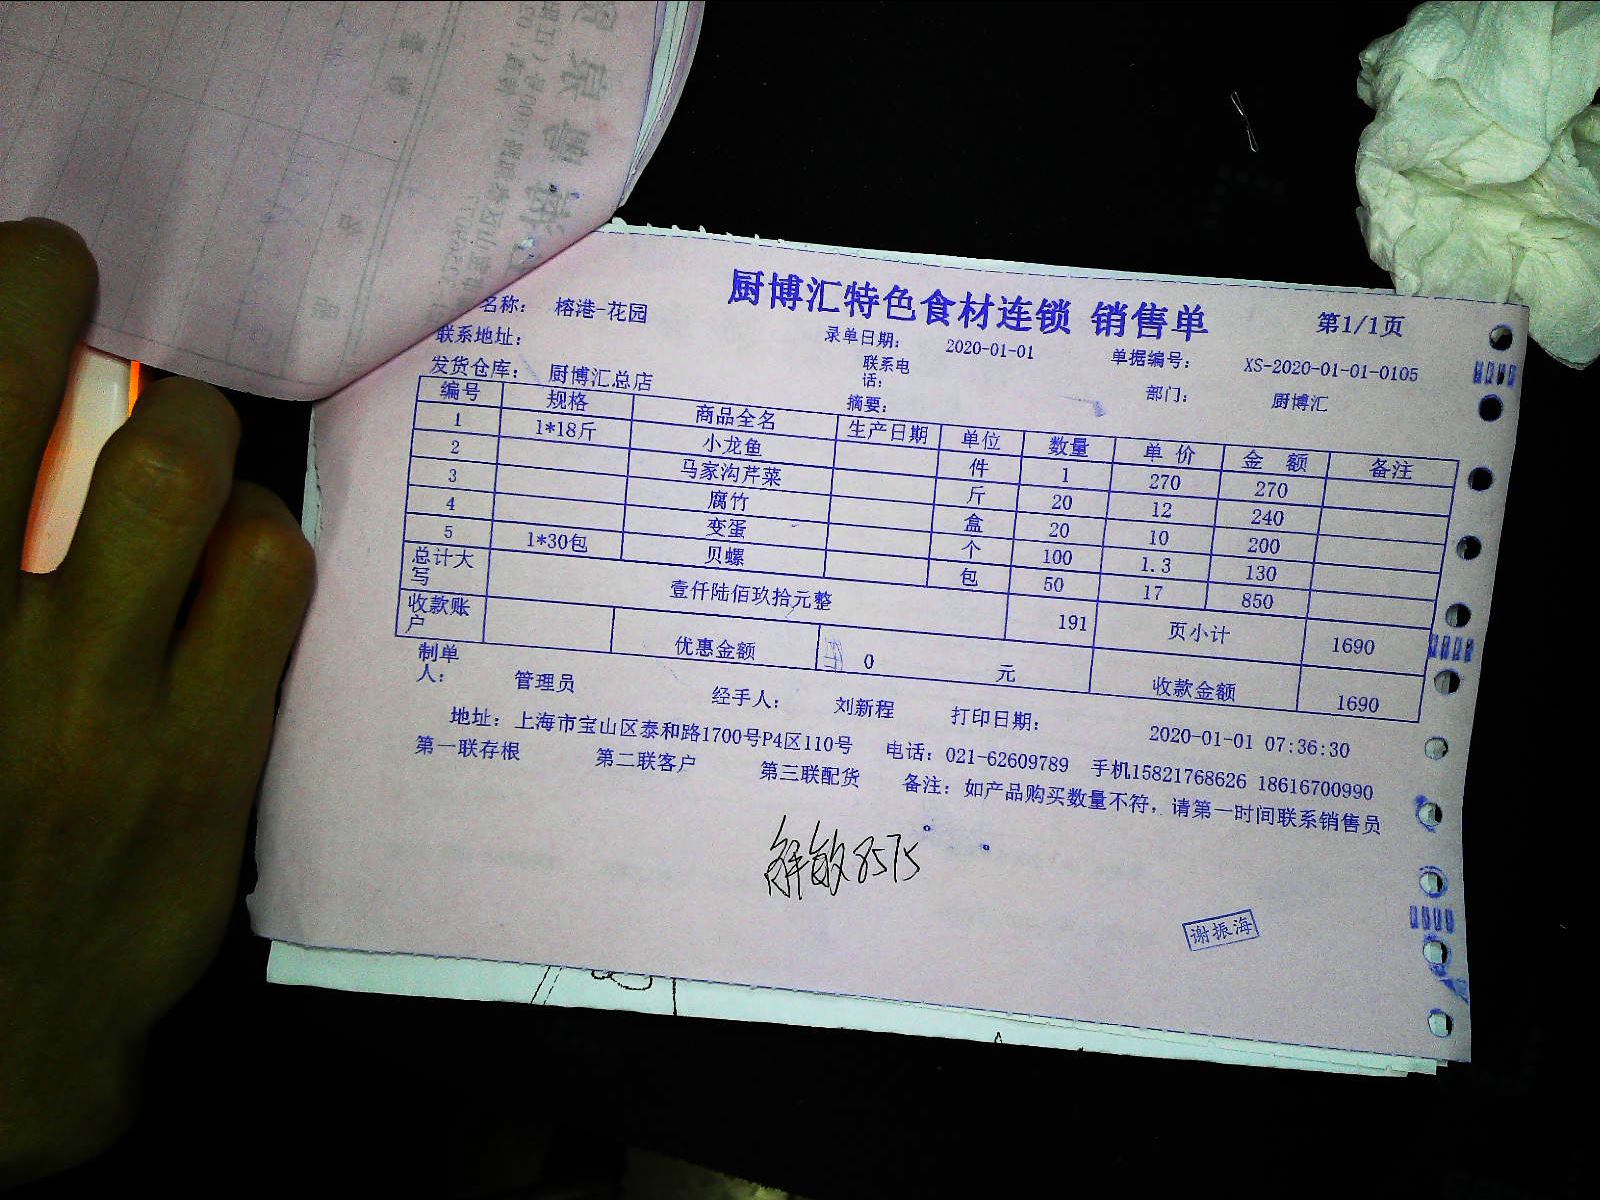 厨博汇特色食材连锁 销售单
第1/1页
名称： 榕港-花园
录单日期： 2020-01-01 单据编号： XS-2020-01-01-0105
联系地址： 联系电话： 部门： 厨博汇
发货仓库： 厨博汇总店 摘要：
编号 规格 商品全名 生产日期 单位 数量 单 价 金 额 备注
1 1*18斤 小龙鱼 件 1 270 270
2 马家沟芹菜 斤 20 12 240
3 腐竹 盒 20 10 200
4 变蛋 个 100 1.3 130
5 1*30包 贝螺 包 50 17 850
总计大写 壹仟陆佰玖拾元整 191 页小计 1690
收款账户 优惠金额 0 元 收款金额 1690
制单人： 管理员 经手人： 刘新程 打印日期： 2020-01-01 07:36:30
地址：上海市宝山区泰和路1700号P4区110号 电话：021-62609789 手机15821768626 18616700990
第一联存根 第二联客户 第三联配货 备注：如产品购买数量不符，请第一时间联系销售员
8575
谢振海